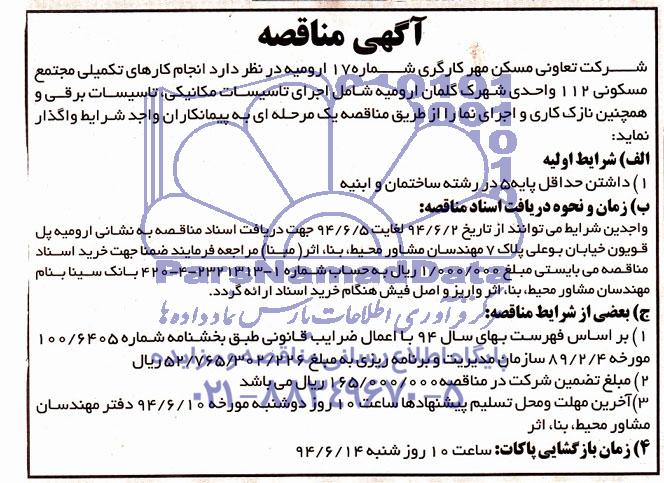 آگهی مناقصه
شرکت تعاونی مسکن مهر کارگری شماره ۱۷ ارومیه در نظر دارد انجام کارهای تکمیلی مجتمع
مسکونی ۱۱۲ واحدی شهرک گلمان ارومیه شامل اجرای تاسیسات مکانیکی، تاسیسات برقی و
همچنین نازک کاری و اجرای نما را از طریق مناقصه یک مرحله ای به پیمانکاران واجد شرایط واگذار
نماید:
الف) شرایط اولیه
۱) داشتن حداقل پایه ۵ در رشته ساختمان و ابنیه
ب) زمان و نحوه دریافت اسناد مناقصه:
واجدین شرایط می توانند از تاریخ ۹۴/۶/۲ لغایت ۹۴/۶/۵ جهت دریافت اسناد مناقصه به نشانی ارومیه پل
قویون خیابان بوعلی پلاک ۷ مهندسان مشاور محیط، بنا، اثر (مبنا) مراجعه فرمایند ضمنا جهت خرید اسناد
مناقصه می بایستی مبلغ ۱/۰۰۰/۰۰۰ ریال به حساب شماره ۱-۲۳۴۱۳۱۳-۴-۴۲۰ بانک سینا بنام
مهندسان مشاور محیط، بنا، اثر واریز و اصل فیش هنگام خرید اسناد ارائه گردد.
ج) بعضی از شرایط مناقصه:
۱) بر اساس فهرست بهای سال ۹۴ با اعمال ضرایب قانونی طبق بخشنامه شماره ۱۰۰/۶۴۰۵
مورخه ۸۹/۲/۴ سازمان مدیریت و برنامه ریزی به مبلغ ۵۲/۷۶۵/۳۰۲/۲۲۶ ریال
۲) مبلغ تضمین شرکت در مناقصه ۱۶۵/۰۰۰/۰۰۰ ریال می باشد
۳) آخرین مهلت ومحل تسلیم پیشنهادها ساعت ۱۰ روز دوشنبه مورخه ۹۴/۶/۱۰ دفتر مهندسان
مشاور محیط، بنا، اثر
۴) زمان بازگشایی پاکات: ساعت ۱۰ روز شنبه ۹۴/۶/۱۴
ParsNamadData
مرکز فرآوری اطلاعات پارس نماد داده ها
پایگاه اطلاع رسانی مناقصه و مزایده
۰۲۱-۸۸۳۴۹۶۷۰-۵